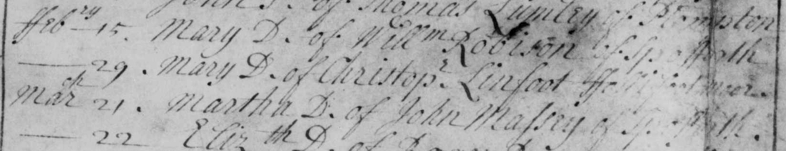 John S. of Thomas Lumley of
ffeb:ry 15. Mary D. of Will:m Robison of Spofforth
—— 29. Mary D. of Christop:r Linfoot
March 21. Martha D. of John Massey of Spofforth.
—— 22 Eliz:th D. of